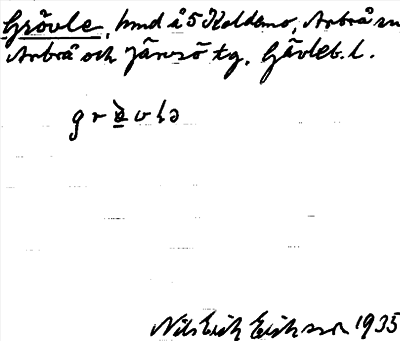 Grövle, hmd å 5 Koldemo, Arbrå sn
Arbrå och Järvsö tg, Gävleb. l.
Nils Erik Eriksson 1935